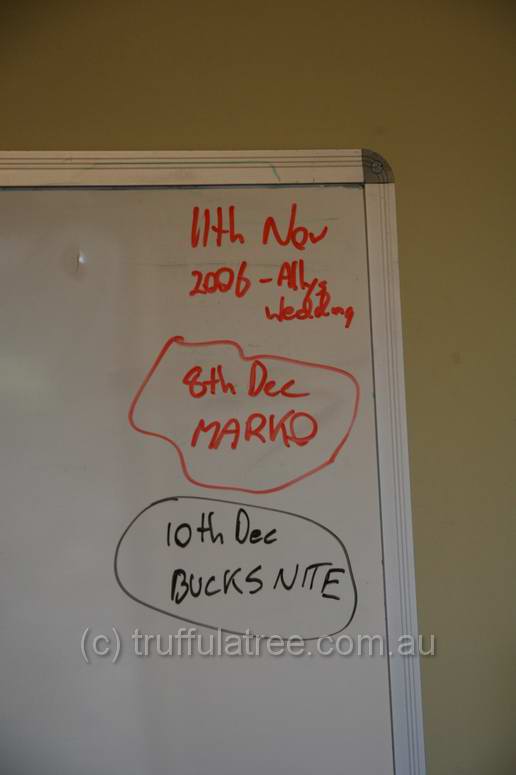 11th Nov
2006 - Allys
Wedding
8th Dec
MARKO
10th Dec
BUCKS NITE
(c) truffulatree.com.au